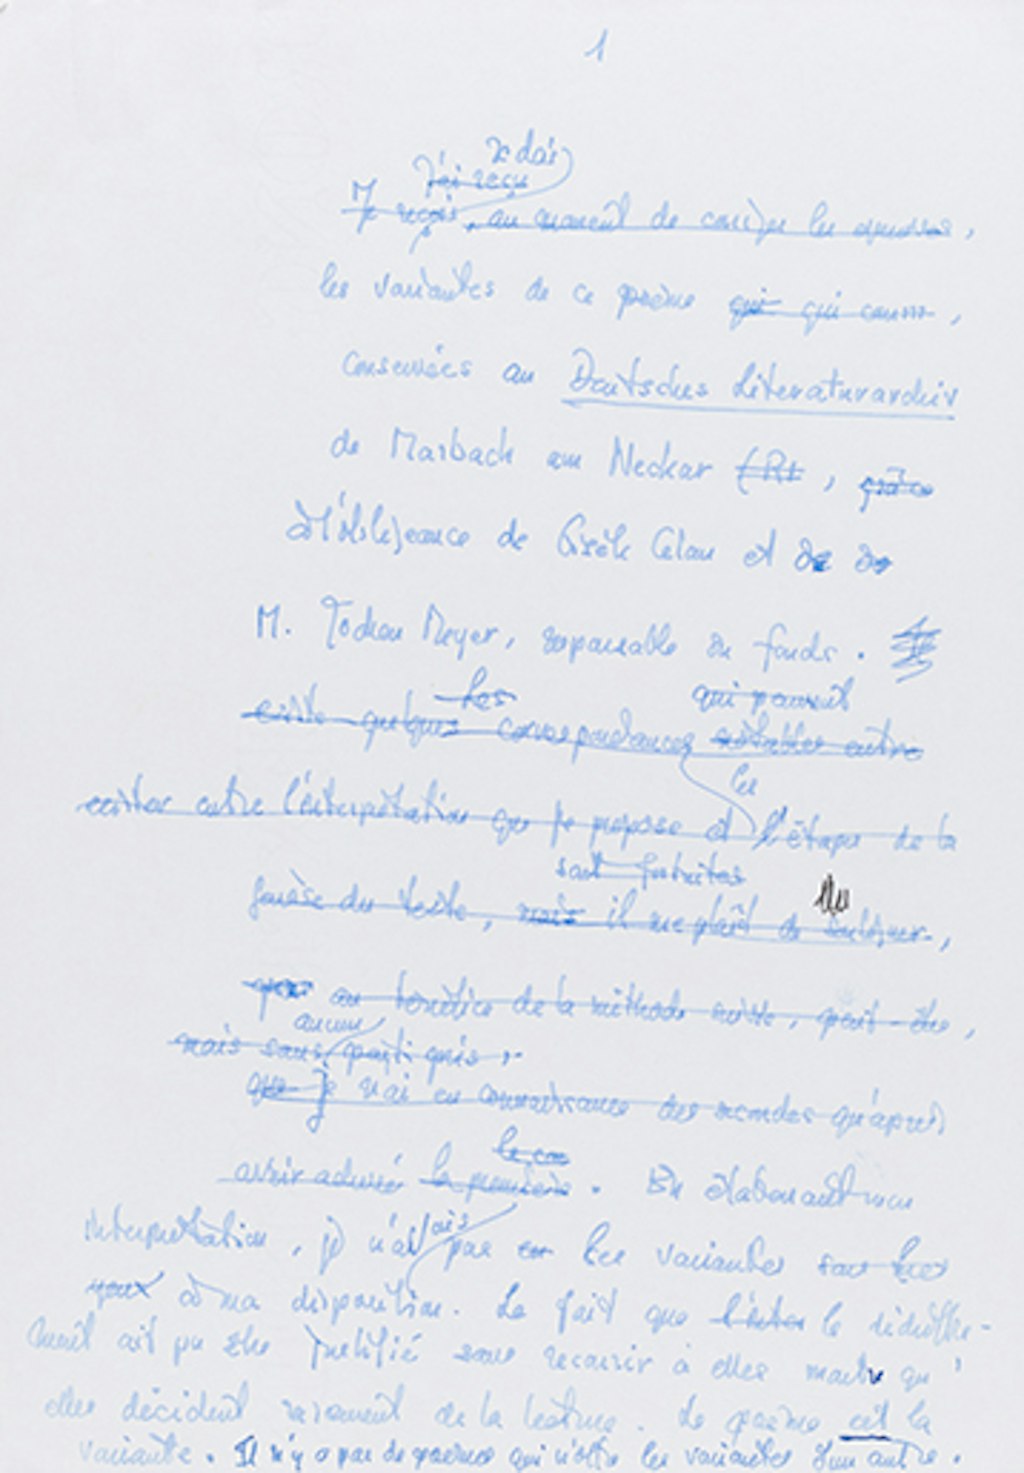 1
Je dois
J'ai reçu
Je reçois, au moment de corriger les épreuves,
les variantes de ce poème qui qui
conservées au Deutsches Literaturarchiv
de Marbach am Neckar (Rf, grâce
à l'obligeance de Gisèle Celan et de
M. Jochen Meyer, responsable du fonds.
Les qui peuvent
existe quelques correspondances notables entre
les
exister entre l'interprétation que je propose et l'étape de la
sont fortuites
genèse du texte, mais il me plaît de souligner,
que au bénéfice de la méthode suivie, peut-être,
aucun
mais sans parti pris,
que je n'ai eu connaissance des secondes qu'après
avoir achevé la première. En élaborant mon
interprétation, je n'avais pas eu les variantes sous les
yeux à ma disposition. Le fait que le déchiffre-
ment ait pu être justifié sans recourir à elles montre qu'
elles décident rarement de la lecture. Le poème est la
variante. Il n'y a pas de poème qui n'offre les variantes d'un autre.